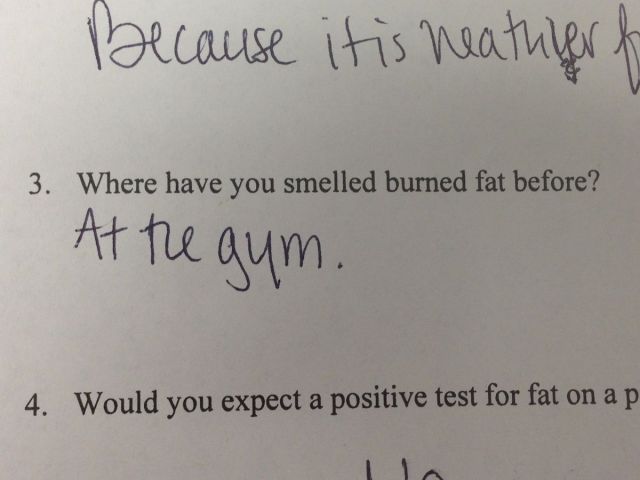 Because it is neather
3. Where have you smelled burned fat before?
At the gym.
4. Would you expect a positive test for fat on a p